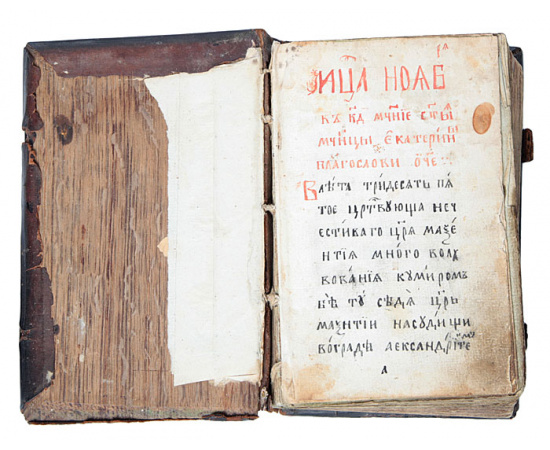 мц҃а ноѧб
къ к҃д мч҃нїе ст҃ыѧ
мч҃ницы екатерин
благослови ѻ҃че :
Влѣта тридесѧть пѧ
тое цр҃твующа неч
естиваго цр҃ѧ маѯе
нтїѧ много волх
вованїѧ кумиромъ
бѣ ту сѣдѧ цр҃ь
маѯнтїи насудищи
воградѣ алеѯандрїте
а